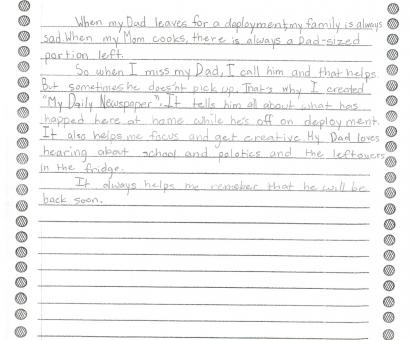 When my Dad leaves for a deployment, my family is always
sad. When my Mom cooks, there is always a Dad-sized
portion left.
So when I miss my Dad, I call him and that helps.
But sometimes he does'nt pick up. That's why I created
"My Daily Newspaper". It tells him all about what has
happed here at home while he's off on deployment.
It also helps me focus and get creative. My Dad loves
hearing about school and polotics and the leftovers
in the fridge.
It always helps me remeber that he will be
back soon.